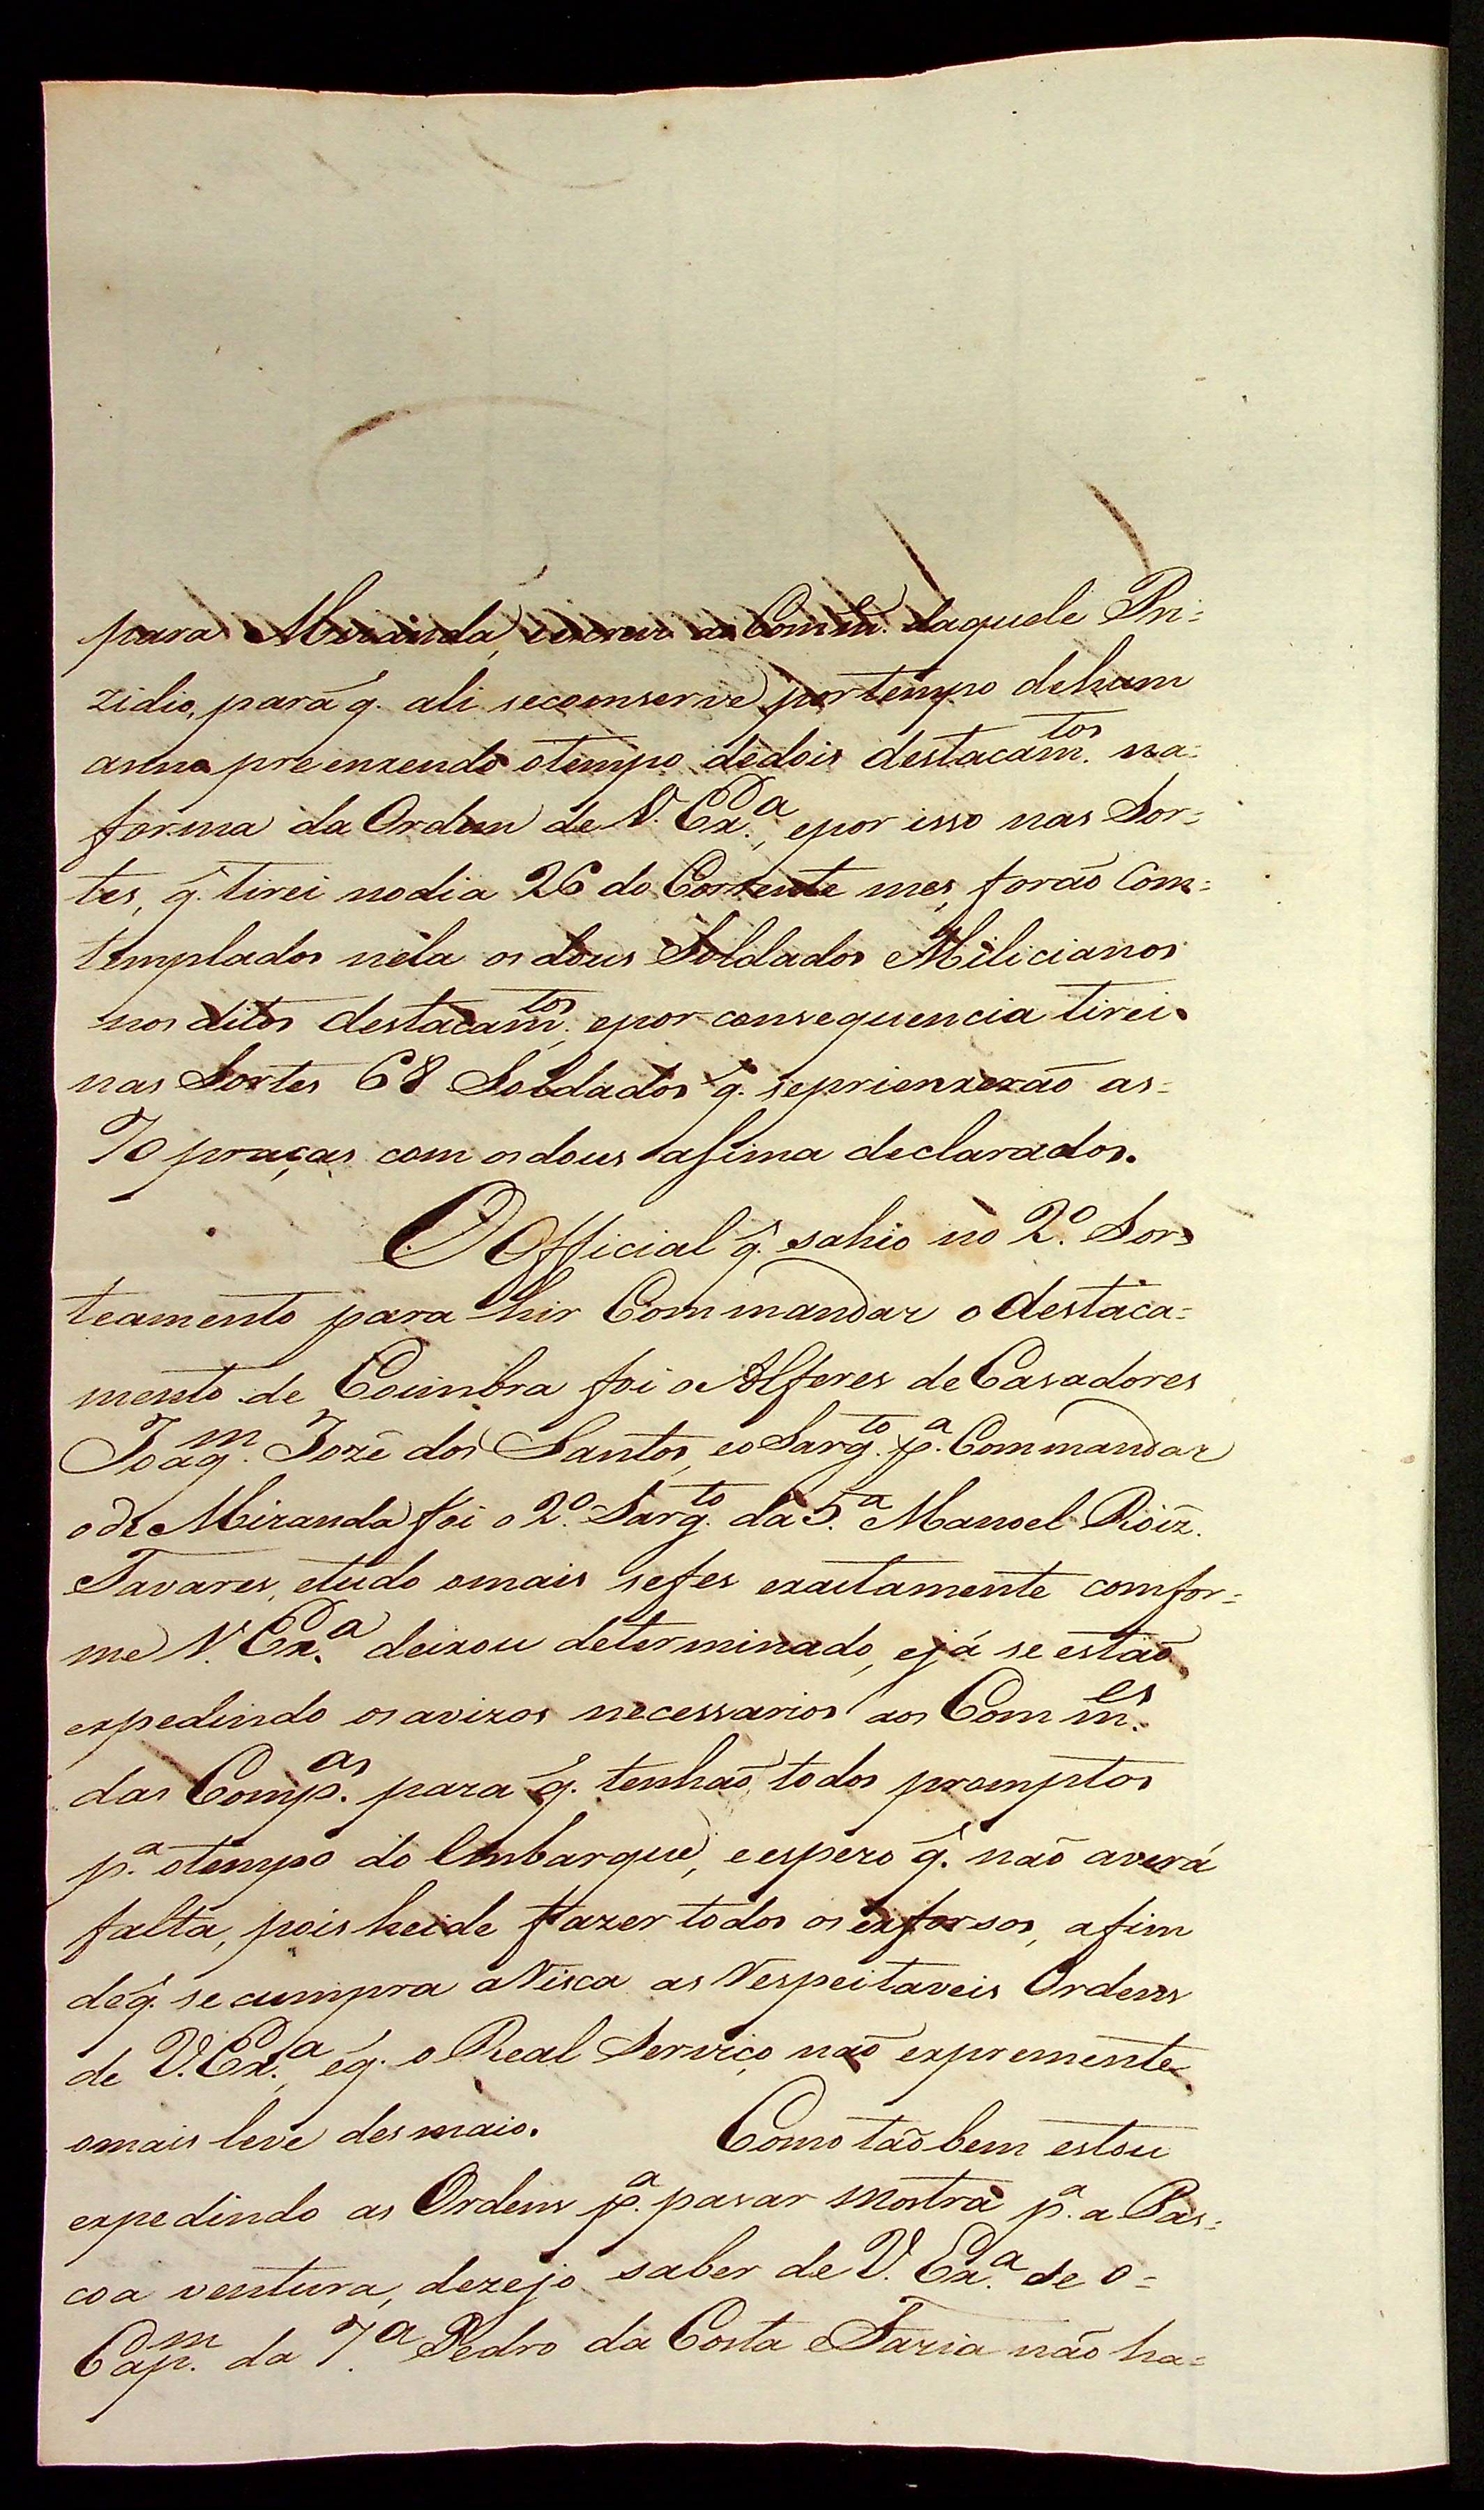 para Miranda, escrevi ao Comm.te daquele Pri=
zidio, para q. ali seconserve portempo dehum
anno preenxendo otempo dedois destacam.tos na=
forma da Ordem de V. Ex.a, epor isso nas Sor=
tes, q. tirei nodia 26 do Corrente mes, forão Com=
templados nela os dous Soldados Milicianos
nos ditos destacam.tos, epor consequencia tirei
nas Sortes 68 Soldados q. seprienxerão as=
70 praças com os dous asima declarados.
O Official q. sahio no 2.o Sor=
teamento para hir Commandar o destaca=
mento de Coimbra foi o Alferes de Casadores
Joaq.m Jozé dos Santos, eo Sarg.to p.a Commandar
o de Miranda foi o 2.o Sarg.to da 5.a Manoel Roiz.
Tavares, etudo omais sefes exactamente comfor=
me V. Ex.a deixou determinado, ejá se estão
expedindo os avizos necessarios aos Comm.es
das Comp.as para q. tenhão todos promptos
p.a otempo do Embarque, eespero q. não averá
falta, pois heide fazer todos os exforsos, afim
deq. se cumpra aRisca as Respeitaveis Ordens
de V. Ex.a, eq. o Real Serviço não expremente
omais leve desmaio. Como tão bem estou
expedindo as Ordens p.a pasar mostra p.a a Pas=
coa ventura, dezejo saber de V. Ex.a se o=
Cap.m da 7.a Pedro da Costa e Faria não ha=